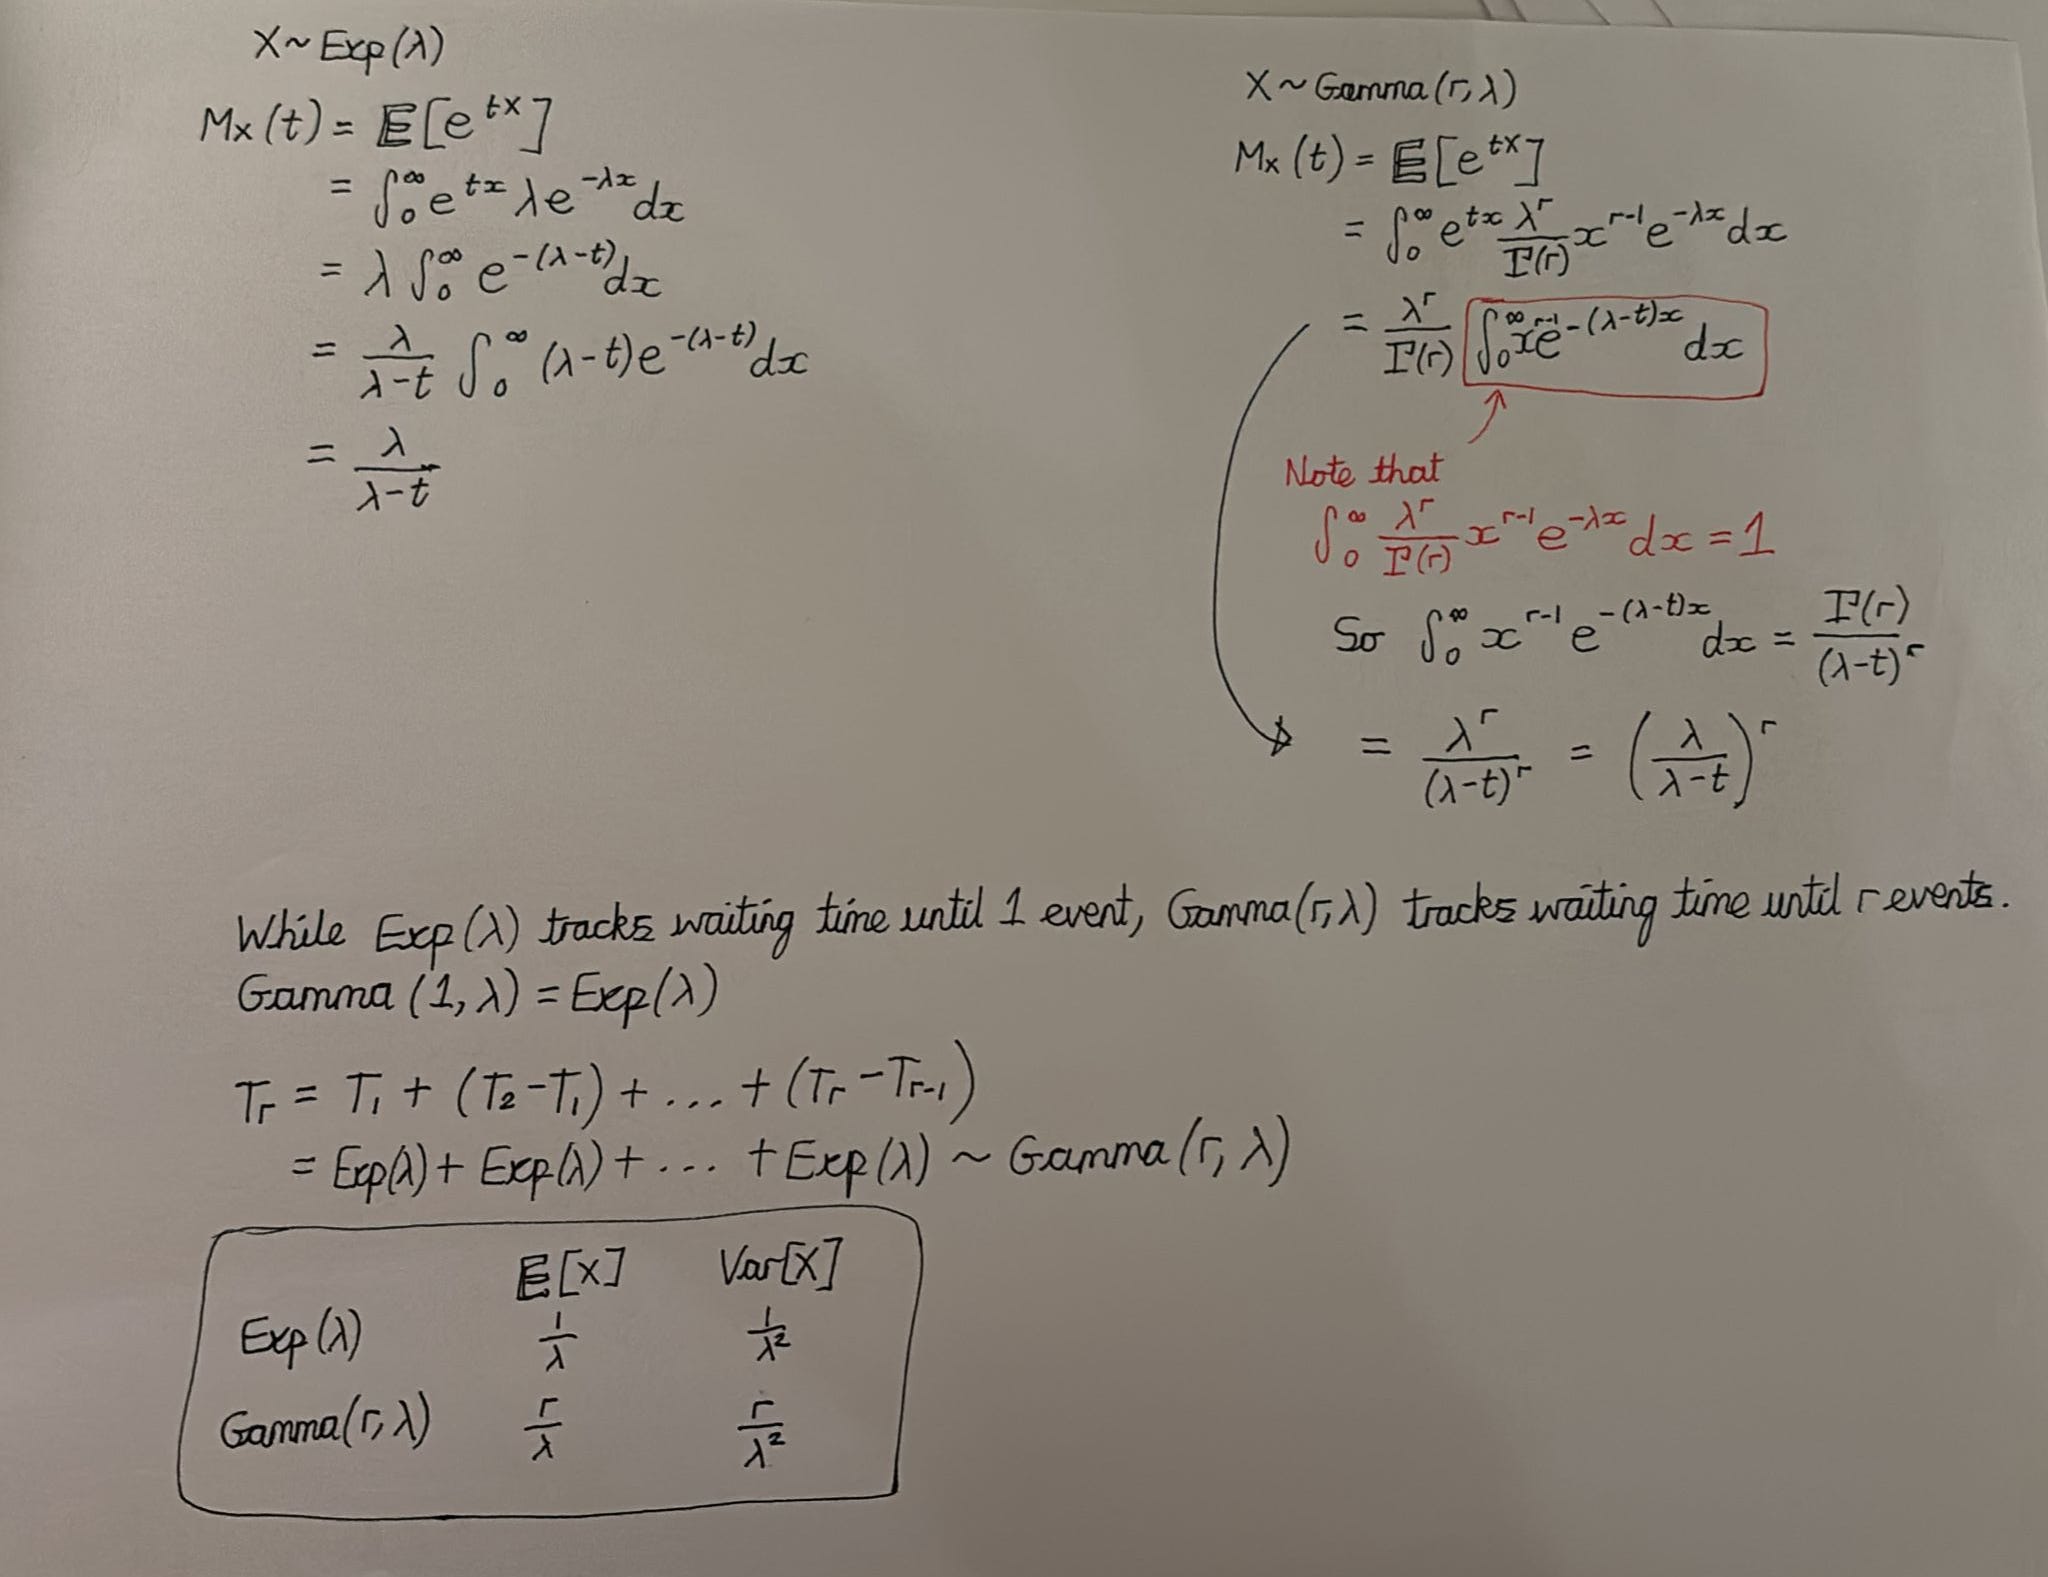 X ~ Exp(λ)
Mx(t) = 𝔼[e^{tX}]
= ∫₀^∞ e^{tx} λe^{-λx} dx
= λ ∫₀^∞ e^{-(λ-t)} dx
= \frac{λ}{λ-t} ∫₀^∞ (λ-t)e^{-(λ-t)} dx
= \frac{λ}{λ-t}
X ~ Gamma(r, λ)
Mx(t) = 𝔼[e^{tX}]
= ∫₀^∞ e^{tx} \frac{λ^r}{Γ(r)} x^{r-1} e^{-λx} dx
= \frac{λ^r}{Γ(r)} ∫₀^∞ x^{r-1} e^{-(λ-t)x} dx
Note that
∫₀^∞ \frac{λ^r}{Γ(r)} x^{r-1} e^{-λx} dx = 1
So ∫₀^∞ x^{r-1} e^{-(λ-t)x} dx = \frac{Γ(r)}{(λ-t)^r}
= \frac{λ^r}{(λ-t)^r} = (\frac{λ}{λ-t})^r
While Exp(λ) tracks waiting time until 1 event, Gamma(r, λ) tracks waiting time until r events.
Gamma(1, λ) = Exp(λ)
T_r = T₁ + (T₂-T₁) + ... + (T_r - T_{r-1})
= Exp(λ) + Exp(λ) + ... + Exp(λ) ~ Gamma(r, λ)
𝔼[X] Var[X]
Exp(λ) \frac{1}{λ} \frac{1}{λ²}
Gamma(r, λ) \frac{r}{λ} \frac{r}{λ²}